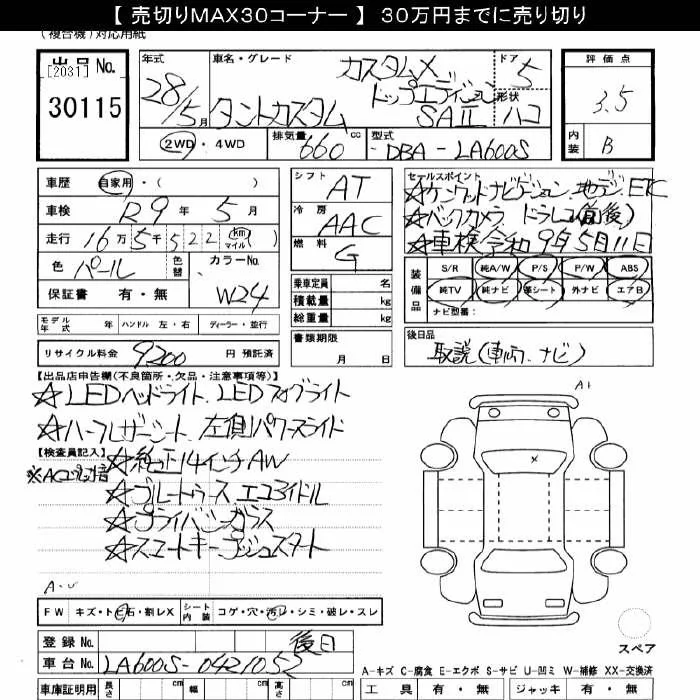 【 売切りMAX30コーナー 】 30万円までに売り切り
(複合機)対応用紙
出品 No. [2031] 30115
年式 28/5月
車名・グレード カスタムX トップエディション SAII タントカスタム
ドア 5 形状 ハコ
評価点 3.5
内装 B
2WD ・ 4WD 排気量 660 cc 型式 DBA - LA600S
車歴 自家用・( )
車検 R9 年 5 月
走行 16万5千522 (km マイル)
色 パール 色替 カラーNo. W24
保証書 有・無
シフト AT
冷房 AAC
燃料 G
乗車定員 名
積載量 kg
総重量 kg
セールスポイント
☆ケンウッドナビゲーション 地デジ ETC
☆バックカメラ ドラレコ(前後)
☆車検令和9年5月11日
装備品 S/R 純A/W P/S P/W ABS
純TV 純ナビ 革シート 外ナビ エアB
ナビ型番:
モデル年式 年 ハンドル 左・右 ディーラー・並行
書類期限 月 日
後日品 取説(車両、ナビ)
リサイクル料金 9200 円 預託済
【出品店申告欄(不良箇所・欠品・注意事項等)】
☆LEDヘッドライト、LEDフォグライト
☆ハーフレザーシート、左側パワースライド
【検査員記入】 ☆純正14インチAW
☆ブルートゥース エコアイドル
☆プライバシーガラス
☆スマートキープッシュスタート
A1
A-U
FW キズ・トビ石・割レX シート内装 コゲ・穴・汚レ・シミ・破レ・スレ
登録 No. 後日
車台 No. LA600S-0421052
スペア
A-キズ C-腐食 E-エクボ S-サビ U-凹ミ W-補修 XX-交換済
車庫証明用 長さ cm 幅 cm 高さ cm
工具 有・無 ジャッキ 有・無